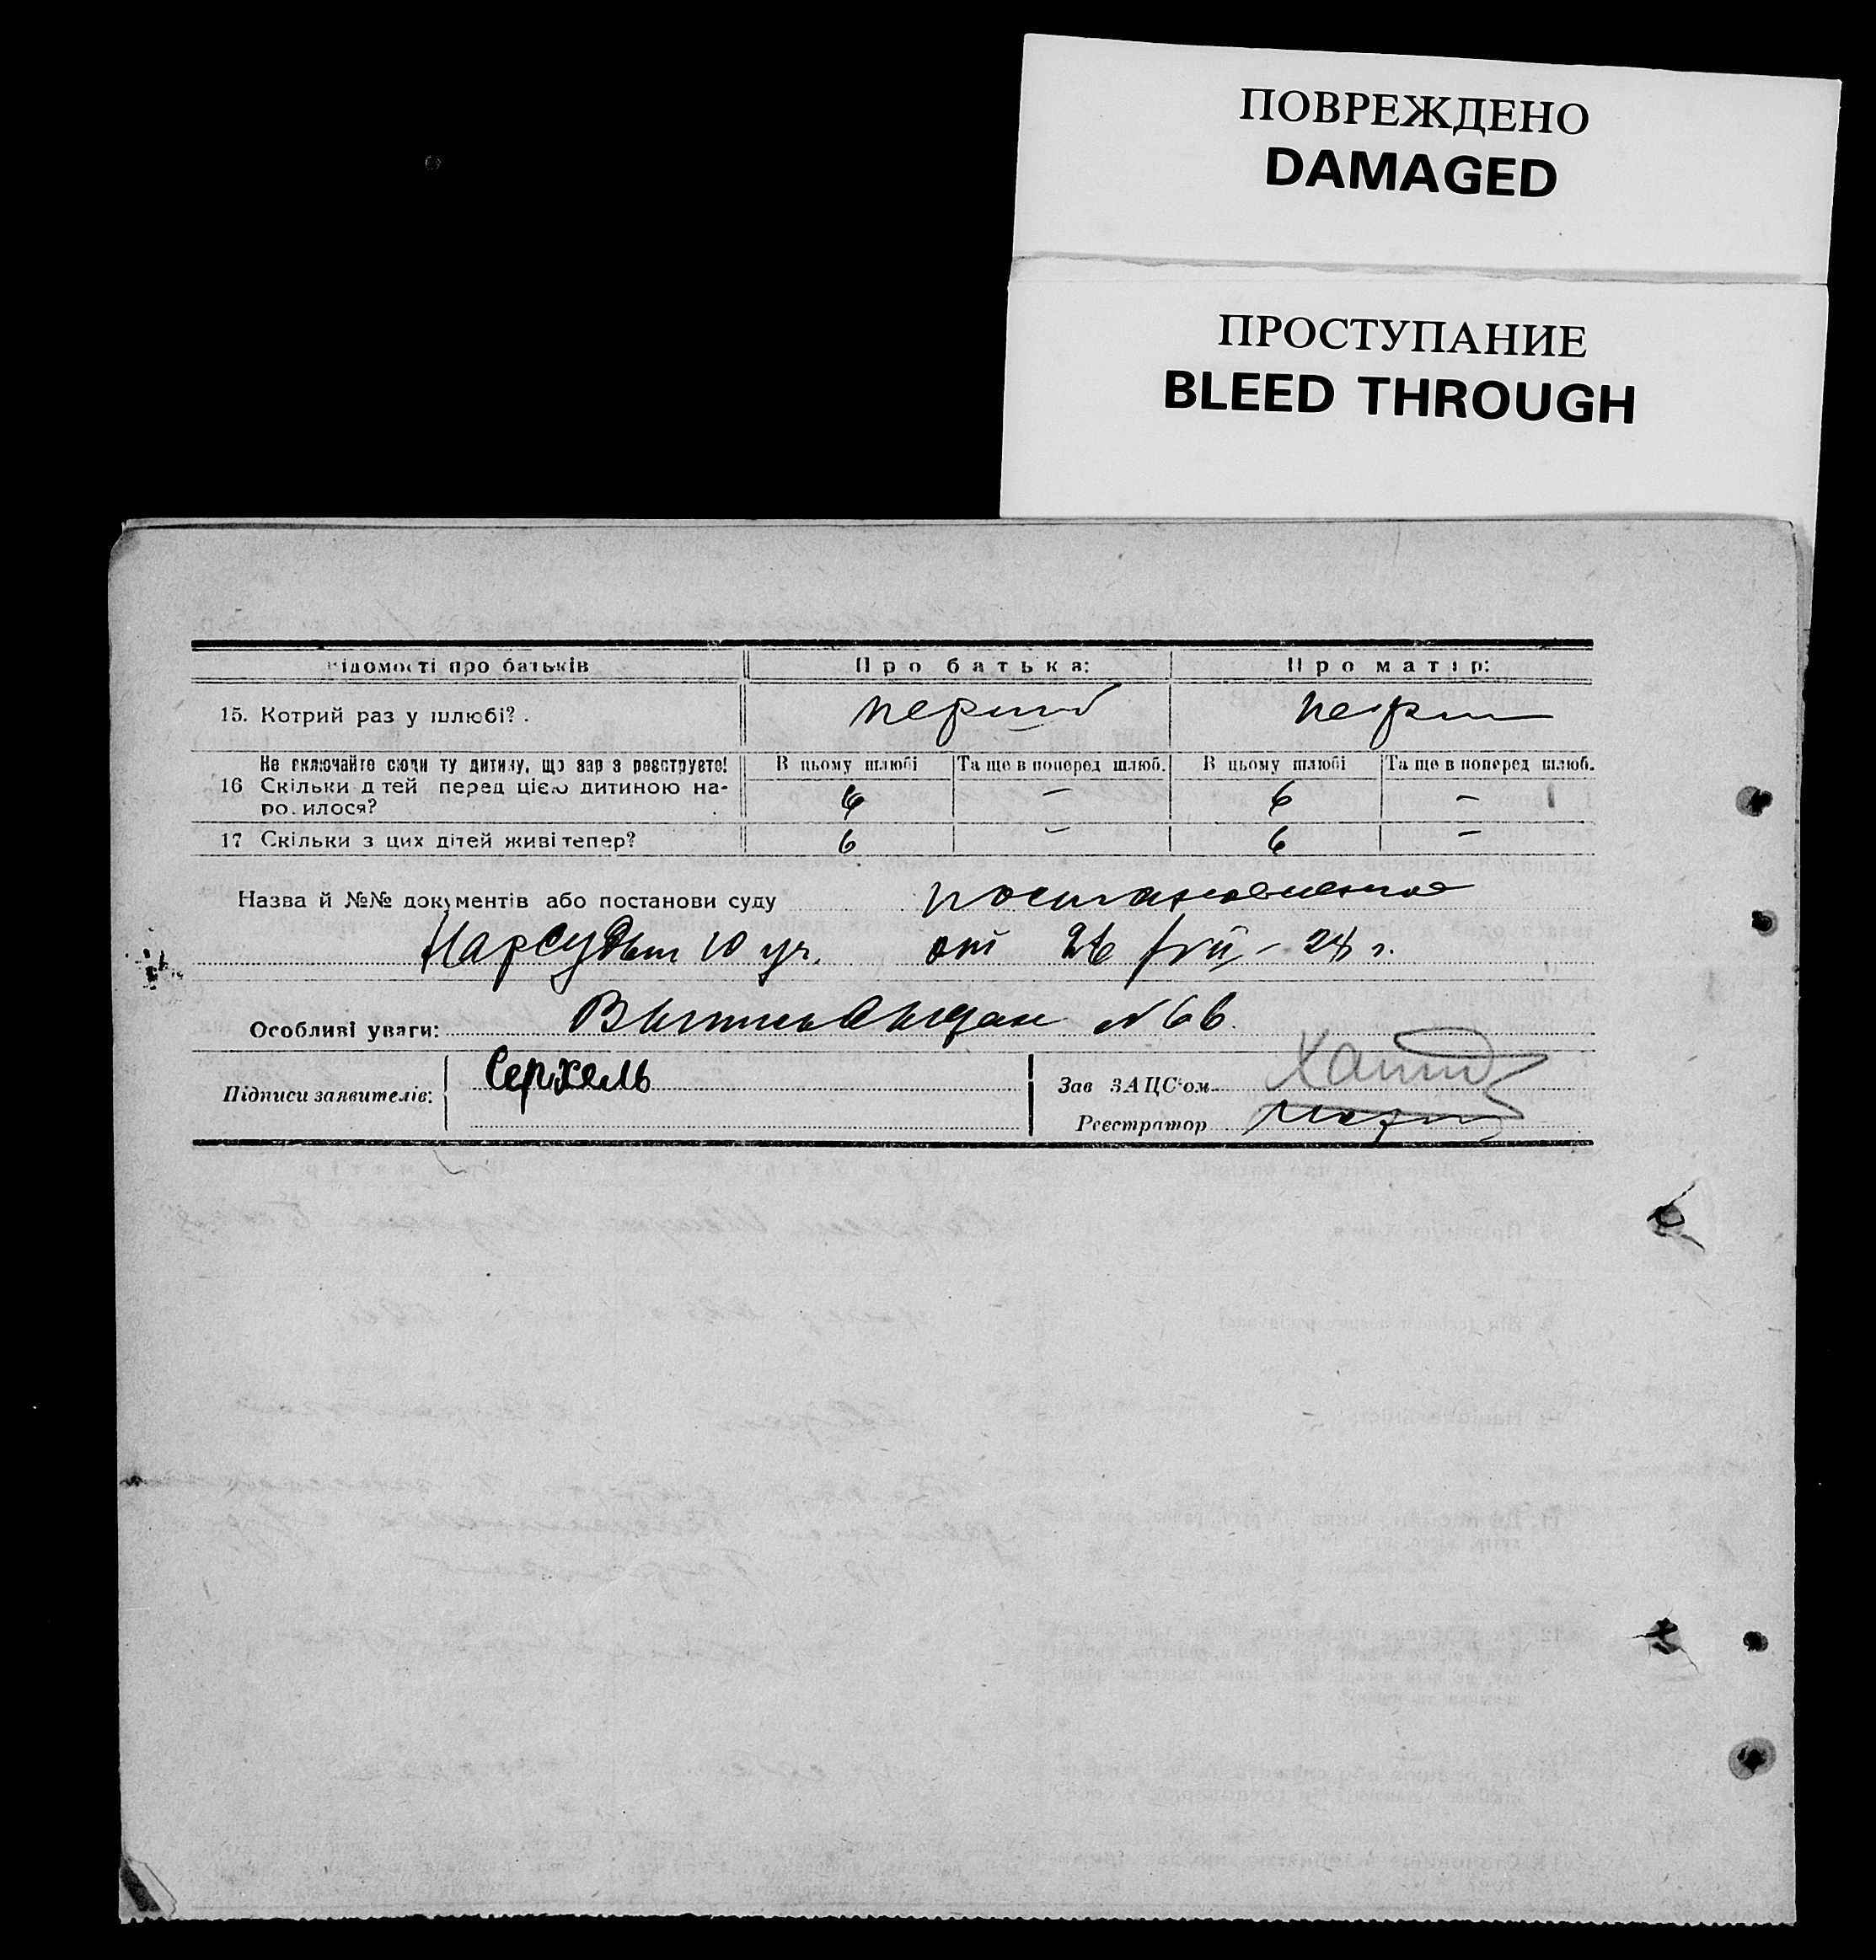 ПОВРЕЖДЕНО
DAMAGED
ПРОСТУПАНИЕ
BLEED THROUGH
відомості про батьків Про батька: Про матір:
15. Котрий раз у шлюбі?. перший перш
Не включайте сюди ту дитину, що зар з реєструєте! В цьому шлюбі Та ще в поперед шлюб. В цьому шлюбі Та ще в поперед шлюб.
16 Скільки д тей перед цією дитиною на- 6 – 6 –
ро. илося?
17 Скільки з цих дітей живі тепер? 6 – 6 –
Назва й №№ документів або постанови суду постановление
Нарсудьи 10 уч. от 26 - 28 г.
Особливі уваги: Выпись выдан №66.
Підписи заявителів: Сержель Зав ЗАЦС'ом
Реєстратор